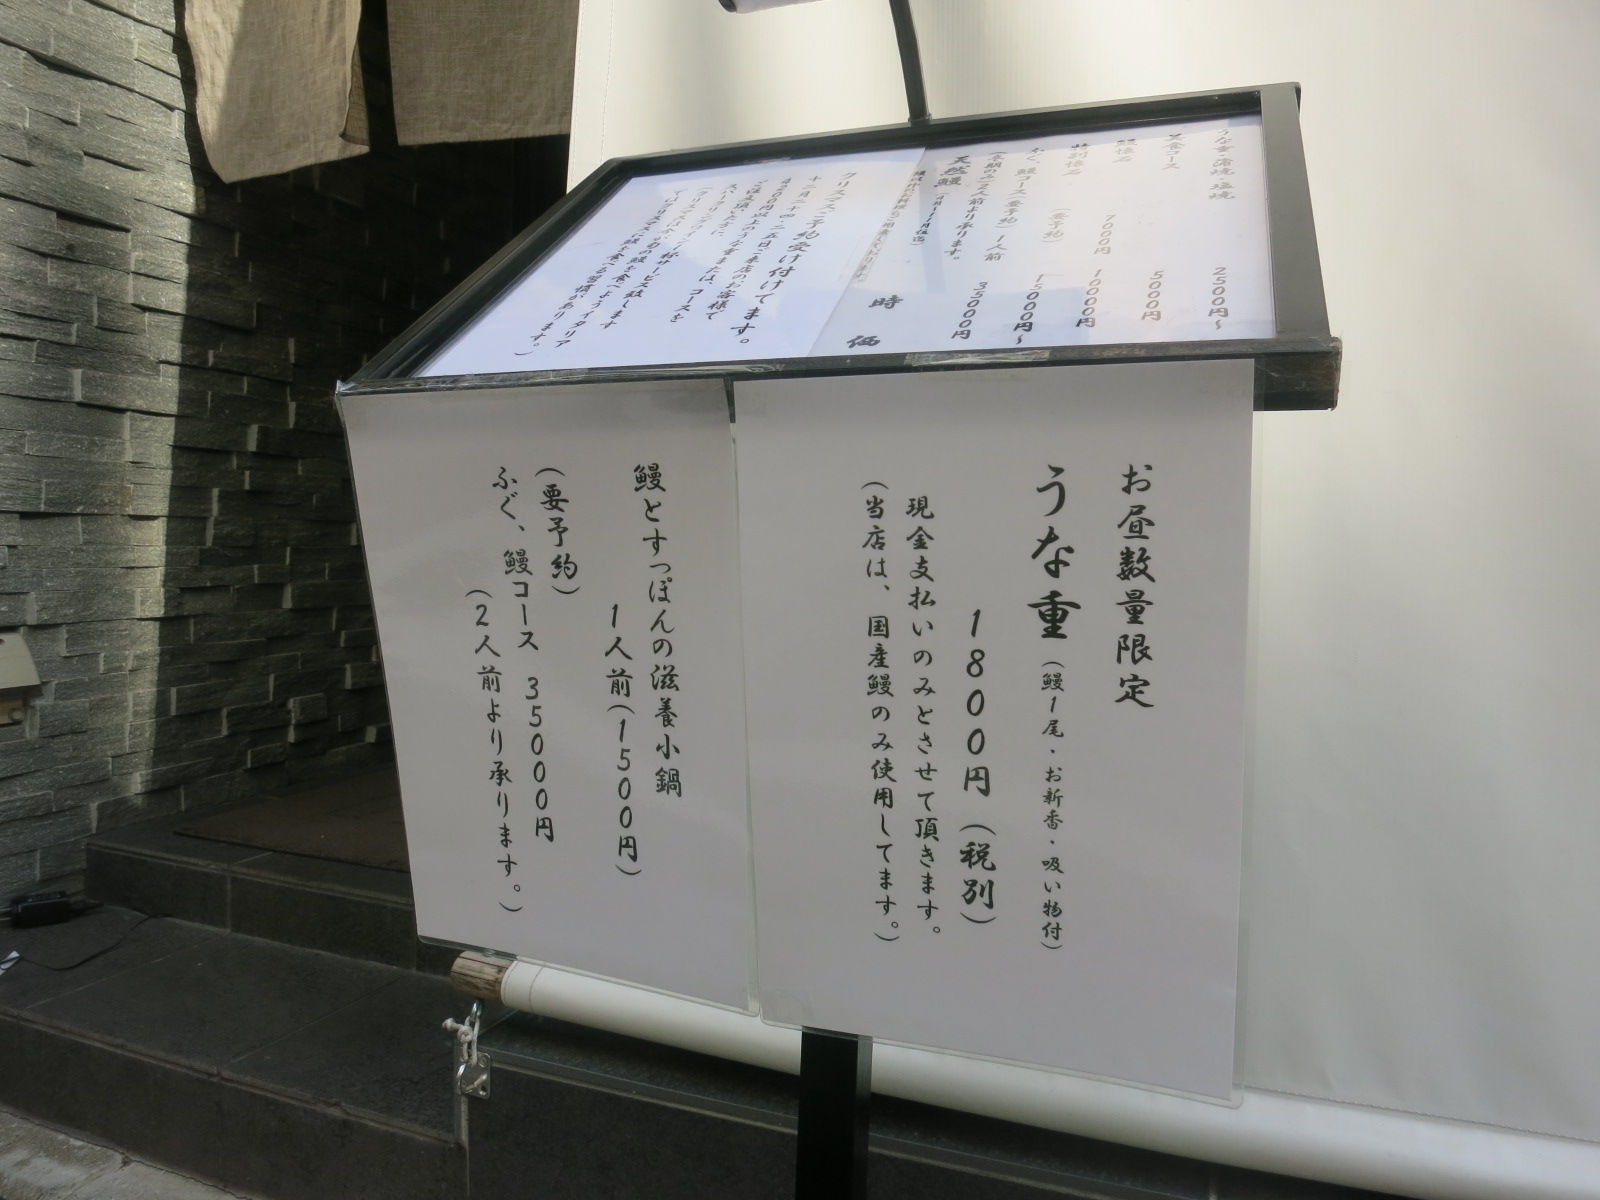 うな重・蒲焼・塩焼 2500円～
昼食コース 5000円
鰻懐石 7000円 10000円
特別懐石 (要予約) 15000円～
ふぐ、鰻コース(要予約) 1人前 35000円
(冬期のみ2人前より承ります。
天然鰻 時価
クリスマスご予約受け付けてます。
十二月二十四・二五日ご来店のお客様で
ご注文頂いた方に
スパークリングワイン1杯サービス致します
お昼数量限定
うな重(鰻1尾・お新香・吸い物付)
1800円(税別)
現金支払いのみとさせて頂きます。
(当店は、国産鰻のみ使用してます。)
鰻とすっぽんの滋養小鍋
1人前(1500円)
(要予約)
ふぐ、鰻コース 35000円
(2人前より承ります。)